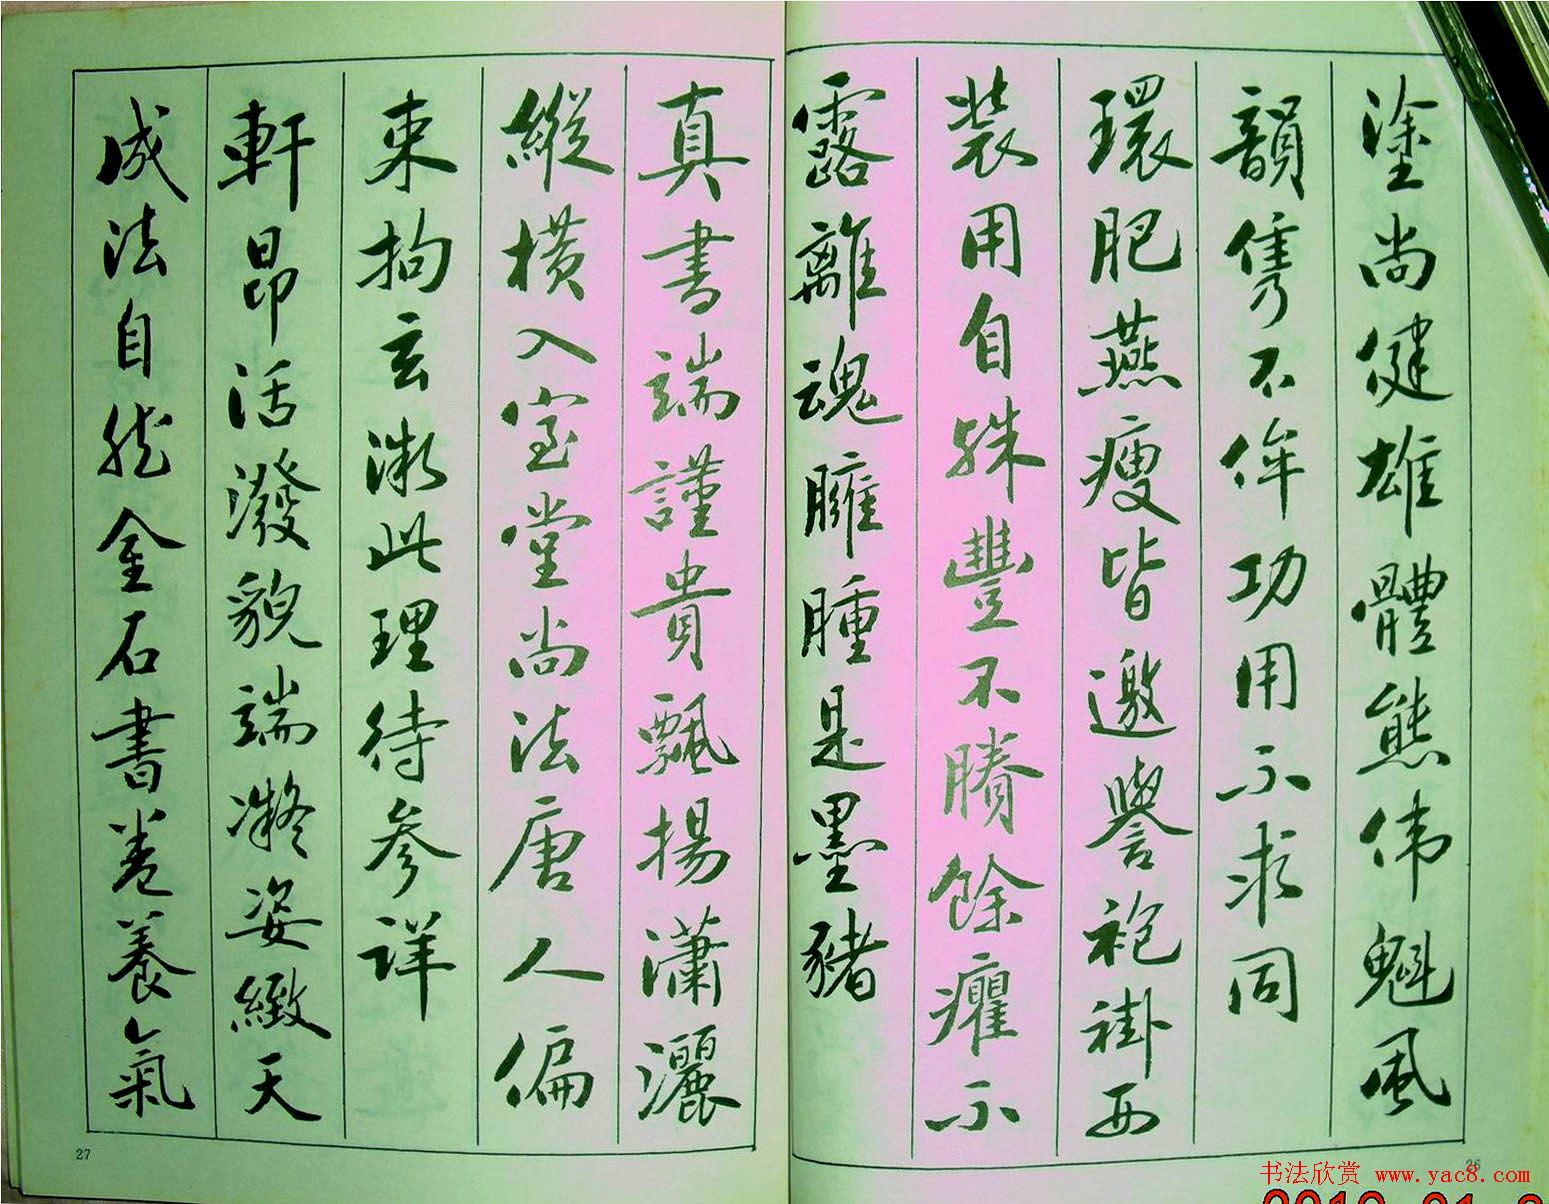 塗尚健雄體態伟魁風
韻雋不侔功用不求同
環肥燕瘦皆邀譽袍褂西
裝用自殊豐不賸餘癯不
露離魂臃腫是墨豬
26
真書端謹貴飄揚瀟灑
縱橫入室堂尚法唐人偏
束拘玄微此理待參詳
軒昂活潑貌端凝姿緻天
成法自然金石書卷養氣
27
书法欣赏 www.yac8.com